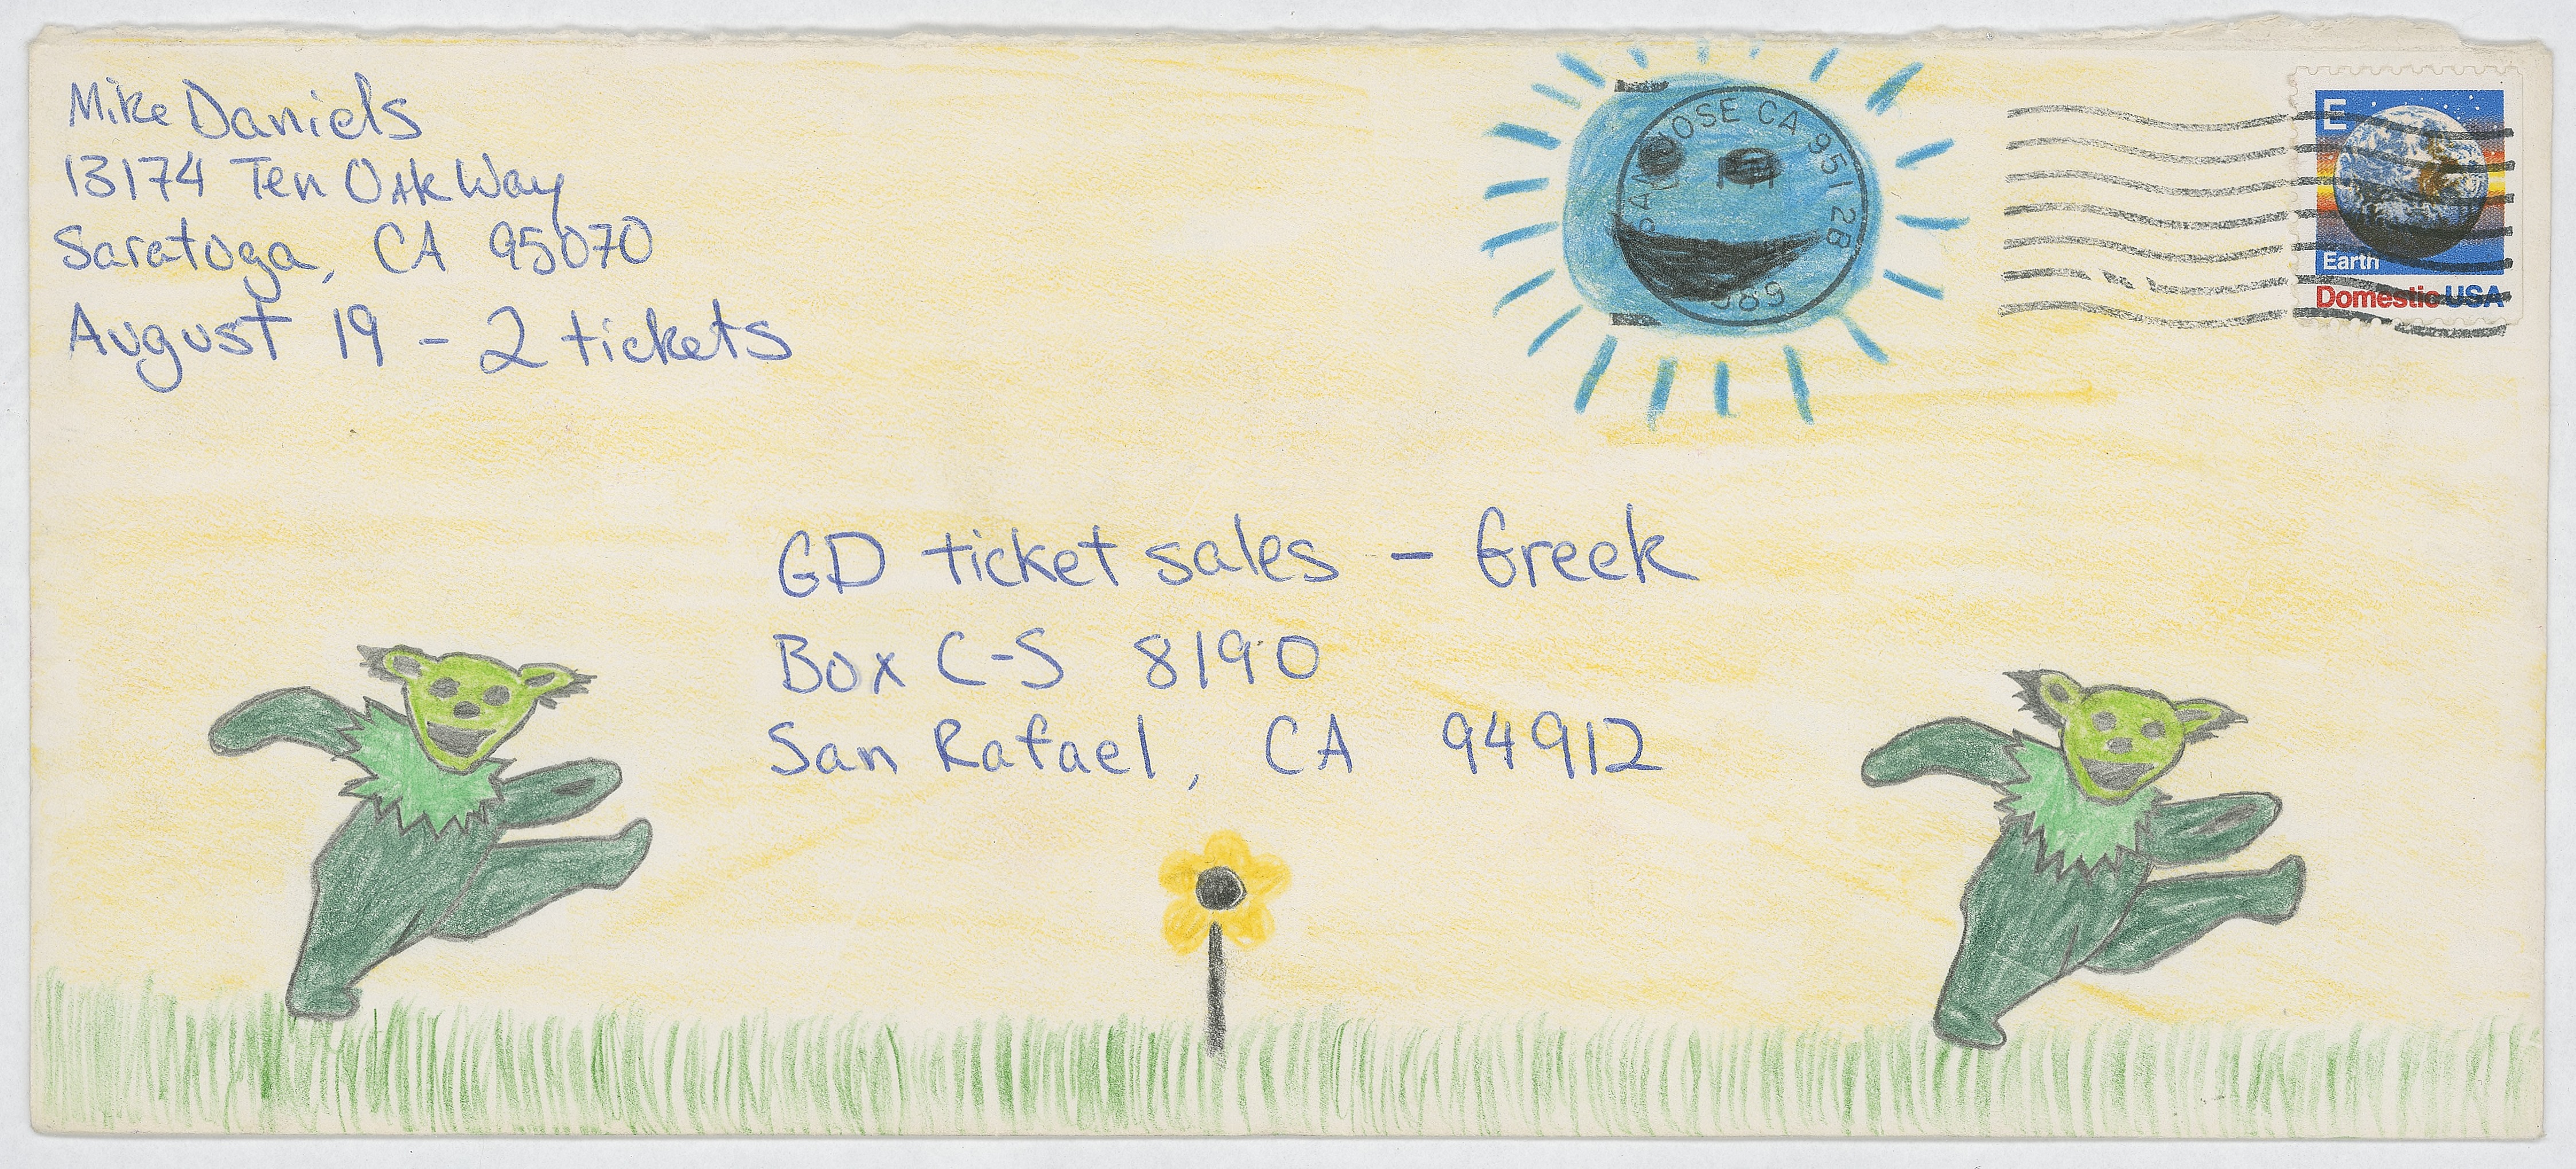 Mike Daniels
13174 Ten Oak Way
Saratoga, CA 95070
August 19 - 2 tickets
SAN JOSE CA 951 2B
PM
1989
E
Earth
Domestic USA
GD ticket sales - Greek
Box C-S 8190
San Rafael, CA 94912